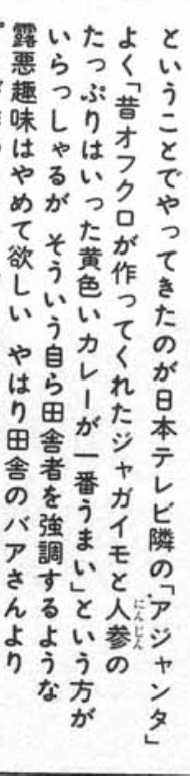 ということでやってきたのが日本テレビ隣の「アジャンタ」
よく「昔オフクロが作ってくれたジャガイモと人参の
たっぷりはいった黄色いカレーが一番うまい」という方が
いらっしゃるが そういう自ら田舎者を強調するような
露悪趣味はやめて欲しい やはり田舎のバアさんより